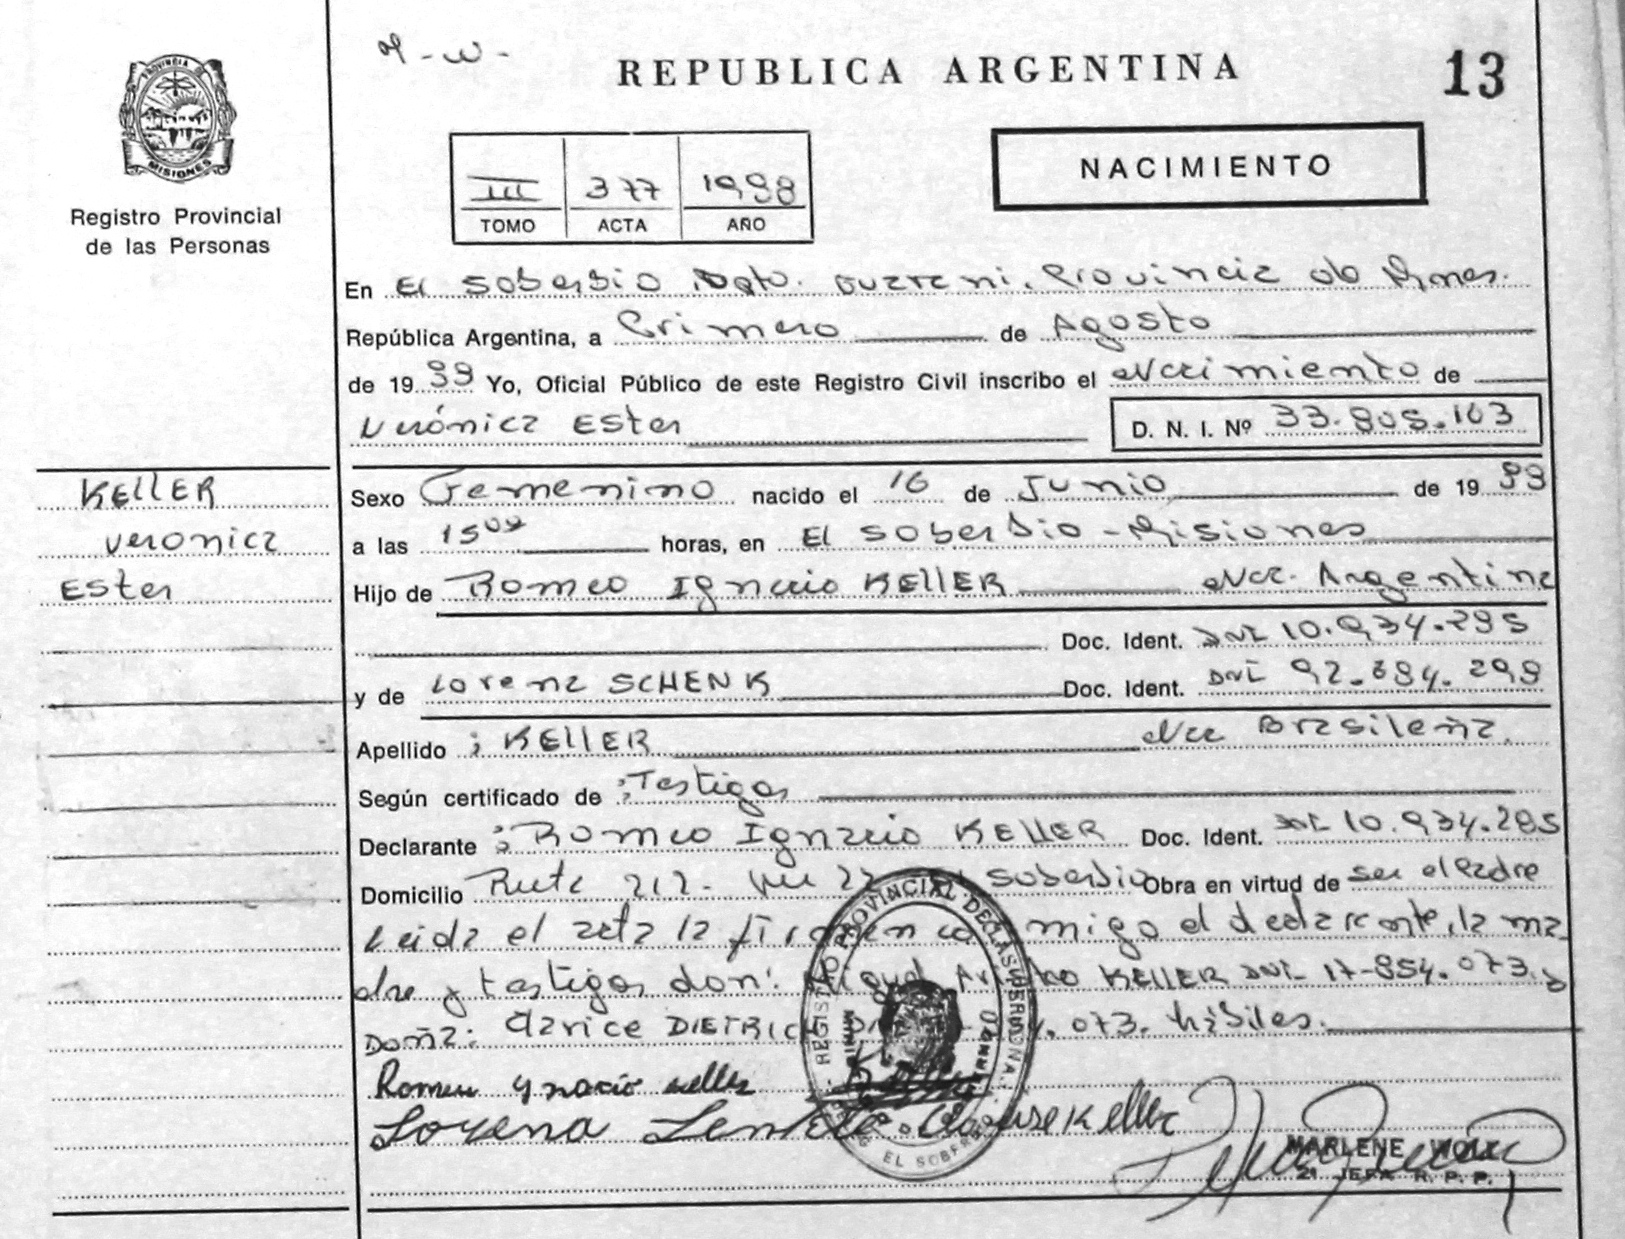 REPUBLICA ARGENTINA
13
PROVINCIA DE
MISIONES
Registro Provincial
de las Personas
III 377 1998
TOMO ACTA AÑO
NACIMIENTO
En El Soberbio Dpto. Guarani. Provincia de Mnes.
República Argentina, a Primero de Agosto
de 19 Yo, Oficial Público de este Registro Civil inscribo el Nacimiento de
Verónica Ester
D. N. I. Nº 33.805.103
KELLER
Veronica
Ester
Sexo Femenino nacido el 16 de Junio de 19
a las 15 horas, en El Soberbio - Misiones
Hijo de Romeo Ignacio KELLER Nac. Argentina
Doc. Ident. DNI 10.934.295
y de Lorena SCHENK Doc. Ident. DNI 92.684.299
Apellido : KELLER Nac Brasileña.
Según certificado de : Testigos
Declarante : Romeo Ignacio KELLER Doc. Ident. DNI 10.934.295
Domicilio Ruta 212. Soberbio Obra en virtud de ser el Padre
Leida el acta la firman migo el declarante, la ma
dre y testigos don: Miguel KELLER DNI 17.854.073. y
Doña: Clarice DIETRICH 073. hábiles.
Romeu Ygnacio Keller
Lorena
Keller
REGISTRO PROVINCIAL DE LAS PERSONAS
EL SOBERBIO
MARLENE
JEFA R. P. P.